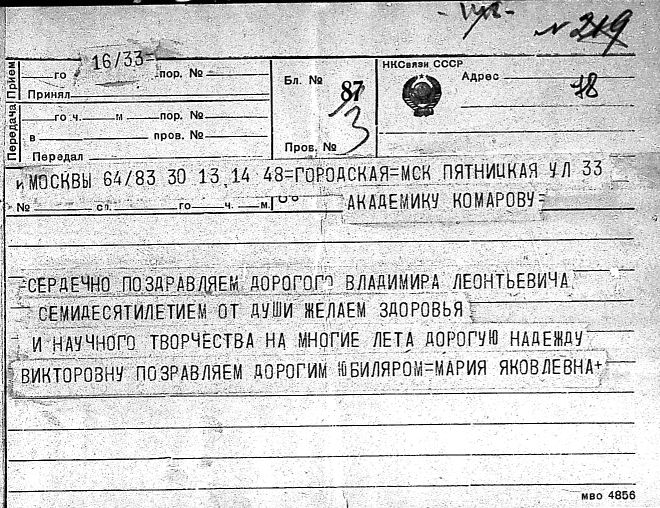 № 219
16/33=
Прием
го пор. №
Принял
Передача
го ч. м пор. №
в пров. №
Передал
Бл. № 87
3
Пров. №
НКСвязи СССР
Адрес 78
и МОСКВЫ 64/83 30 13,14 48=ГОРОДСКАЯ=МСК ПЯТНИЦКАЯ УЛ 33
№ сл. го ч. м.
АКАДЕМИКУ КОМАРОВУ=
=СЕРДЕЧНО ПОЗДРАВЛЯЕМ ДОРОГОГО ВЛАДИМИРА ЛЕОНТЬЕВИЧА
СЕМИДЕСЯТИЛЕТИЕМ ОТ ДУШИ ЖЕЛАЕМ ЗДОРОВЬЯ
И НАУЧНОГО ТВОРЧЕСТВА НА МНОГИЕ ЛЕТА ДОРОГУЮ НАДЕЖДУ
ВИКТОРОВНУ ПОЗРАВЛЯЕМ ДОРОГИМ ЮБИЛЯРОМ=МАРИЯ ЯКОВЛЕВНА+
МВО 4856